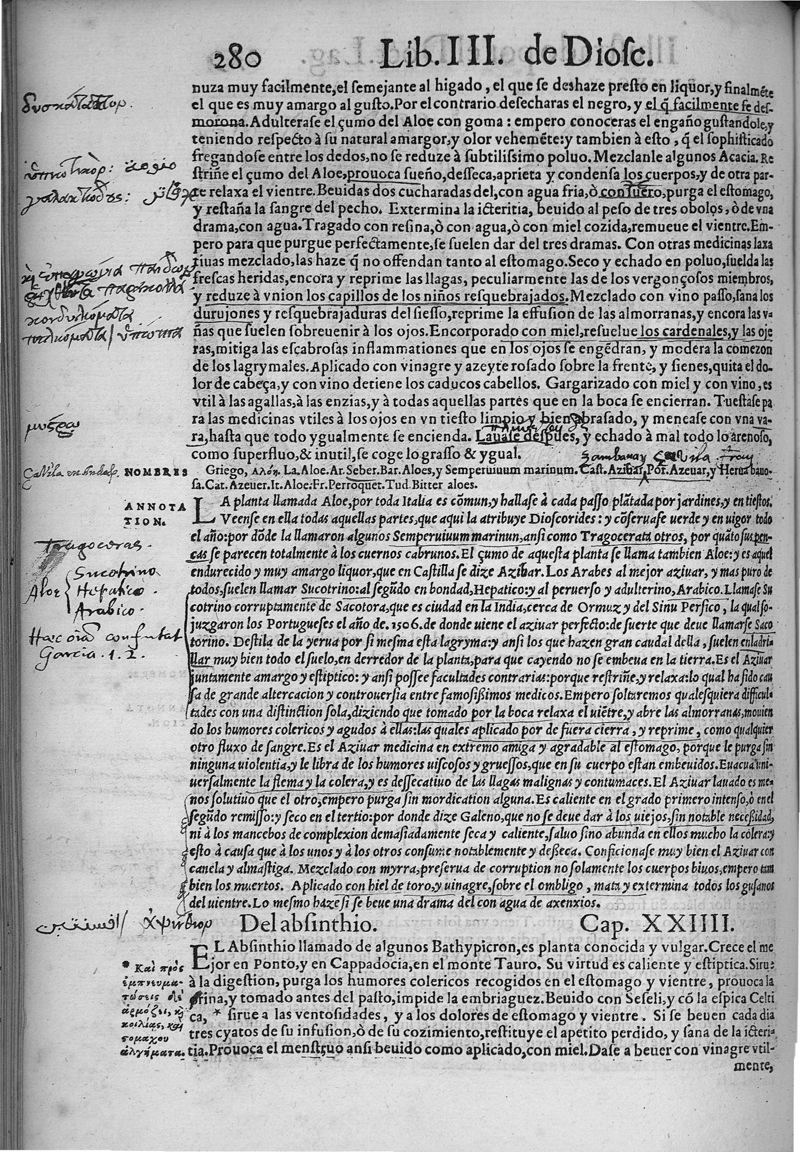 280 Lib. III. de Diosc.
nuza muy facilmente, el semejante al higado, el que se deshaze presto en liquor, y finalmẽte
el que es muy amargo al gusto. Por el contrario desecharas el negro, y el q̃ facilmente se des-
morona. Adulterase el çumo del Aloe con goma: empero conoceras el engaño gustandole, y
teniendo respecto à su natural amargor, y olor vehemẽte: y tambien à esto, q̃ el sophisticado
fregandose entre los dedos, no se reduze à subtilissimo poluo. Mezclanle algunos Acacia. Re
striñe el çumo del Aloe, prouoca sueño, desseca, aprieta y condensa los cuerpos, y de otra par-
te relaxa el vientre. Beuidas dos cucharadas del, con agua fria, ò con suero, purga el estomago,
y restaña la sangre del pecho. Extermina la icteritia, beuido al peso de tres obolos, ò de vna
drama, con agua. Tragado con resina, ò con agua, ò con miel cozida, remueue el vientre. Em-
pero para que purgue perfectamente, se suelen dar del tres dramas. Con otras medicinas laxa
tiuas mezclado, las haze q̃ no offendan tanto al estomago. Seco y echado en poluo, suelda las
frescas heridas, encora y reprime las llagas, peculiarmente las de los vergonçosos miembros,
y reduze à vnion los capillos de los niños resquebrajados. Mezclado con vino passo, sana los
durujones y resquebrajaduras del siesso, reprime la effusion de las almorranas, y encora las v-
ñas que suelen sobreuenir à los ojos. Encorporado con miel, resuelue los cardenales, y las oje
ras, mitiga las escabrosas inflammationes que en los ojos se engẽdran, y modera la comezon
de los lagrymales. Aplicado con vinagre y azeyte rosado sobre la frente, y sienes, quita el do-
lor de cabeça, y con vino detiene los caducos cabellos. Gargarizado con miel y con vino, es
vtil à las agallas, à las enzias, y à todas aquellas partes que en la boca se encierran. Tuestase pa
ra las medicinas vtiles à los ojos en vn tiesto limpio y bien abrasado, y menease con vna va-
ra, hasta que todo ygualmente se encienda. Lauase despues, y echado à mal todo lo arenoso,
como superfluo, & inutil, se coge lo grasso & ygual.
NOMBRES Griego, Αλόη. La. Aloe. Ar. Seber. Bar. Aloes, y Semperuiuum marinum. Cast. Azibar, Por. Azeuar, y Herua bauo-
sa. Cat. Azeuer. It. Aloe. Fr. Perroquet. Tud. Bitter aloes.
ANNOTA
TION.
LA planta llamada Aloe, por toda Italia es cõmun, y hallase à cada passo plãtada por jardines, y en tiestos.
Veense en ella todas aquellas partes, que aqui la atribuye Dioscorides: y cõseruase uerde y en uigor todo
el año: por dõde la llamaron algunos Semperuiuum marinun, ansi como Tragocerata otros, por quãto sus pen-
cas se parecen totalmente à los cuernos cabrunos. El çumo de aquesta planta se llama tambien Aloe: y es aquel
endurecido y muy amargo liquor, que en Castilla se dize Azibar. Los Arabes al mejor aziuar, y mas puro de
todos, suelen llamar Sucotrino: al segũdo en bondad, Hepatico: y al peruerso y adulterino, Arabico. Llamase Su
cotrino corruptamente de Sacotora, que es ciudad en la India, cerca de Ormuz y del Sinu Persico, la qual so-
juzgaron los Portugueses el año de. 1506. de donde uiene el aziuar perfecto: de suerte que deue llamarse Saco
torino. Destila de la yerua por si mesma esta lagryma: y ansi los que hazen gran caudal della, suelen enladri-
llar muy bien todo el suelo, en derredor de la planta, para que cayendo no se embeua en la tierra. Es el Aziuar
juntamente amargo y estiptico: y ansi possee facultades contrarias: porque restriñe, y relaxa: lo qual ha sido cau
sa de grande altercacion y controuersia entre famosissimos medicos. Empero soltaremos qualesquiera difficul-
tades con una distinction sola, diziendo que tomado por la boca relaxa el uiẽtre, y abre las almorranas, mouien
do los humores colericos y agudos à ellas: las quales aplicado por de fuera cierra, y reprime, como qualquier
otro fluxo de sangre. Es el Aziuar medicina en extremo amiga y agradable al estomago, porque le purga sin
ninguna uiolentia, y le libra de los humores uiscosos y gruessos, que en su cuerpo estan embeuidos. Euacua uni-
uersalmente la flema y la colera, y es dessecatiuo de las llagas malignas y contumaces. El Aziuar lauado es me-
nos solutiuo que el otro, empero purga sin mordication alguna. Es caliente en el grado primero intenso, ò en el
segũdo remisso: y seco en el tertio: por donde dize Galeno, que no se deue dar à los uiejos, sin notable necessidad,
ni à los mancebos de complexion demasiadamente seca y caliente, saluo sino abunda en ellos mucho la colera: y
esto à causa que à los unos y à los otros consume notablemente y desseca. Conficionase muy bien el Aziuar con
canela y almastiga. Mezclado con myrra, preserua de corruption no solamente los cuerpos biuos, empero tam
bien los muertos. Aplicado con hiel de toro, y uinagre, sobre el ombligo, mata y extermina todos los gusanos
del uientre. Lo mesmo haze si se beue una drama del con agua de axenxios.
Del absinthio. Cap. XXIIII.
EL Absinthio llamado de algunos Bathypicron, es planta conocida y vulgar. Crece el me
jor en Ponto, y en Cappadocia, en el monte Tauro. Su virtud es caliente y estiptica. Sirue
à la digestion, purga los humores colericos recogidos en el estomago y vientre, prouoca la
orina, y tomado antes del pasto, impide la embriaguez. Beuido con Seseli, y cõ la espica Celti
ca, * sirue à las ventosidades, y a los dolores de estomago y vientre. Si se beuen cada dia
tres cyatos de su infusion, ò de su cozimiento, restituye el apetito perdido, y sana de la icteri-
tia. Prouoca el menstruo ansi beuido como aplicado, con miel. Dase a beuer con vinagre vtil-
mente,
* Καὶ πρὸς
ἐμπνευμα-
τώσεις δὲ
ἁρμόζει, κ̀
κοιλίας, καὶ
στομάχου
ἀλγήματα.
Tragoceras.
Aloe Sucotrino
Hepatico
Arabico.
Garcia. 1. 2.